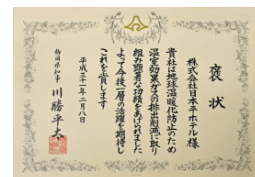 褒状
株式会社日本平ホテル様
貴社は地球温暖化防止のため
温室効果ガスの排出削減に取り
組み顕著な功績をあげられました
よって今後一層の活躍を期待し
これを賞します
平成三十一年二月八日
静岡県知事 川勝平太